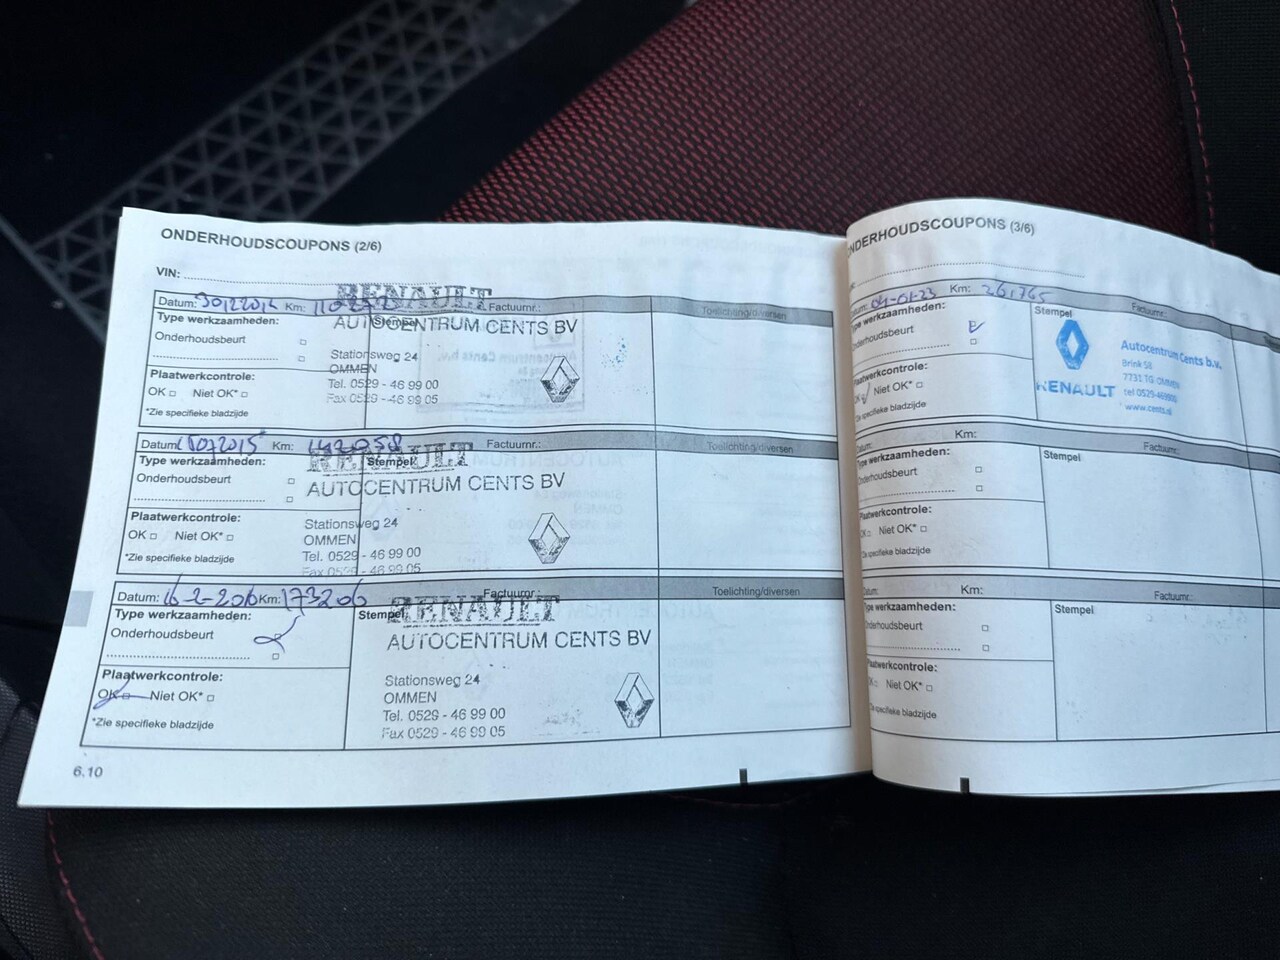 ONDERHOUDSCOUPONS (2/6)
VIN:
Datum: Km: Factuurnr.: Toelichting/diversen
RENAULT
Type werkzaamheden: Stempel
AUTOCENTRUM CENTS BV
Onderhoudsbeurt
Stationsweg 24
OMMEN
Plaatwerkcontrole:
Tel. 0529 - 46 99 00
OK Niet OK*
Fax 0529 - 46 99 05
*Zie specifieke bladzijde
Datum: Km: 142058 Factuurnr.: Toelichting/diversen
RENAULT
Type werkzaamheden: Stempel
AUTOCENTRUM CENTS BV
Onderhoudsbeurt
Stationsweg 24
Plaatwerkcontrole:
OMMEN
OK Niet OK*
Tel. 0529 - 46 99 00
*Zie specifieke bladzijde
Fax 0529 - 46 99 05
Datum: 16-2-2016 Km: 173206 Factuurnr.: Toelichting/diversen
RENAULT
Type werkzaamheden: Stempel
AUTOCENTRUM CENTS BV
Onderhoudsbeurt
Stationsweg 24
Plaatwerkcontrole:
OMMEN
OK Niet OK*
Tel. 0529 - 46 99 00
*Zie specifieke bladzijde
Fax 0529 - 46 99 05
6.10
ONDERHOUDSCOUPONS (3/6)
Km: 26,765 Factuurnr.:
Type werkzaamheden: Stempel
Onderhoudsbeurt
Autocentrum Cents b.v.
Brink 58
7731 TG OMMEN
RENAULT tel 0529-469900
www.cents.nl
Plaatwerkcontrole:
OK Niet OK*
Zie specifieke bladzijde
Datum: Km: Factuurnr.:
Type werkzaamheden: Stempel
Onderhoudsbeurt
Plaatwerkcontrole:
OK Niet OK*
Zie specifieke bladzijde
Datum: Km: Factuurnr.:
Type werkzaamheden: Stempel
Onderhoudsbeurt
Plaatwerkcontrole:
OK Niet OK*
Zie specifieke bladzijde